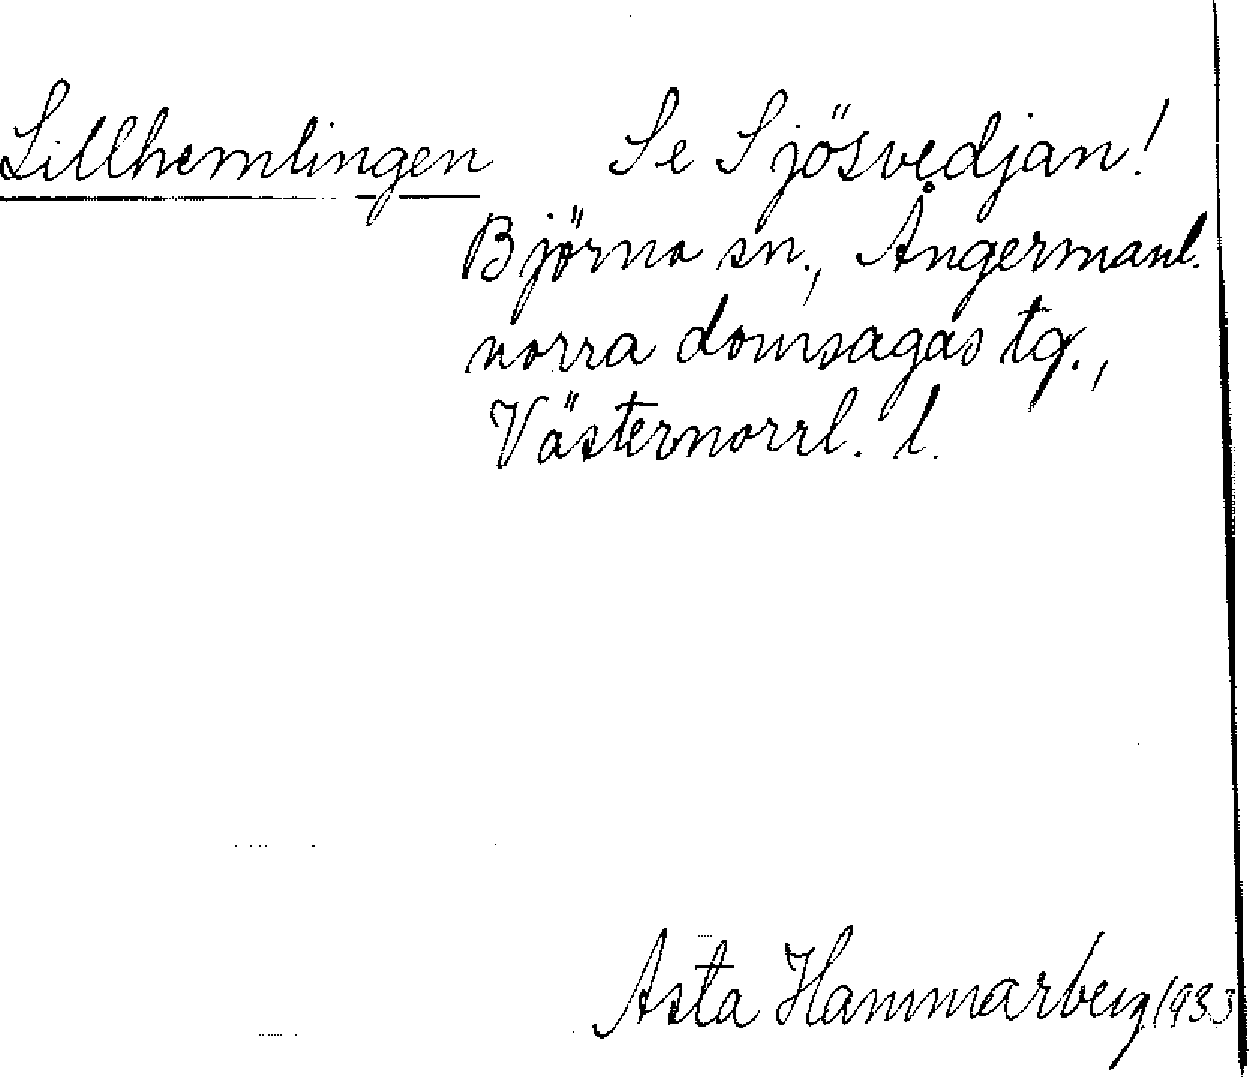 Lillhemlingen Se Sjösvedjan!
Björna sn., Ångermanl.
norra domsagas tg.,
Västernorrl. l.
Asta Hammarberg 1933